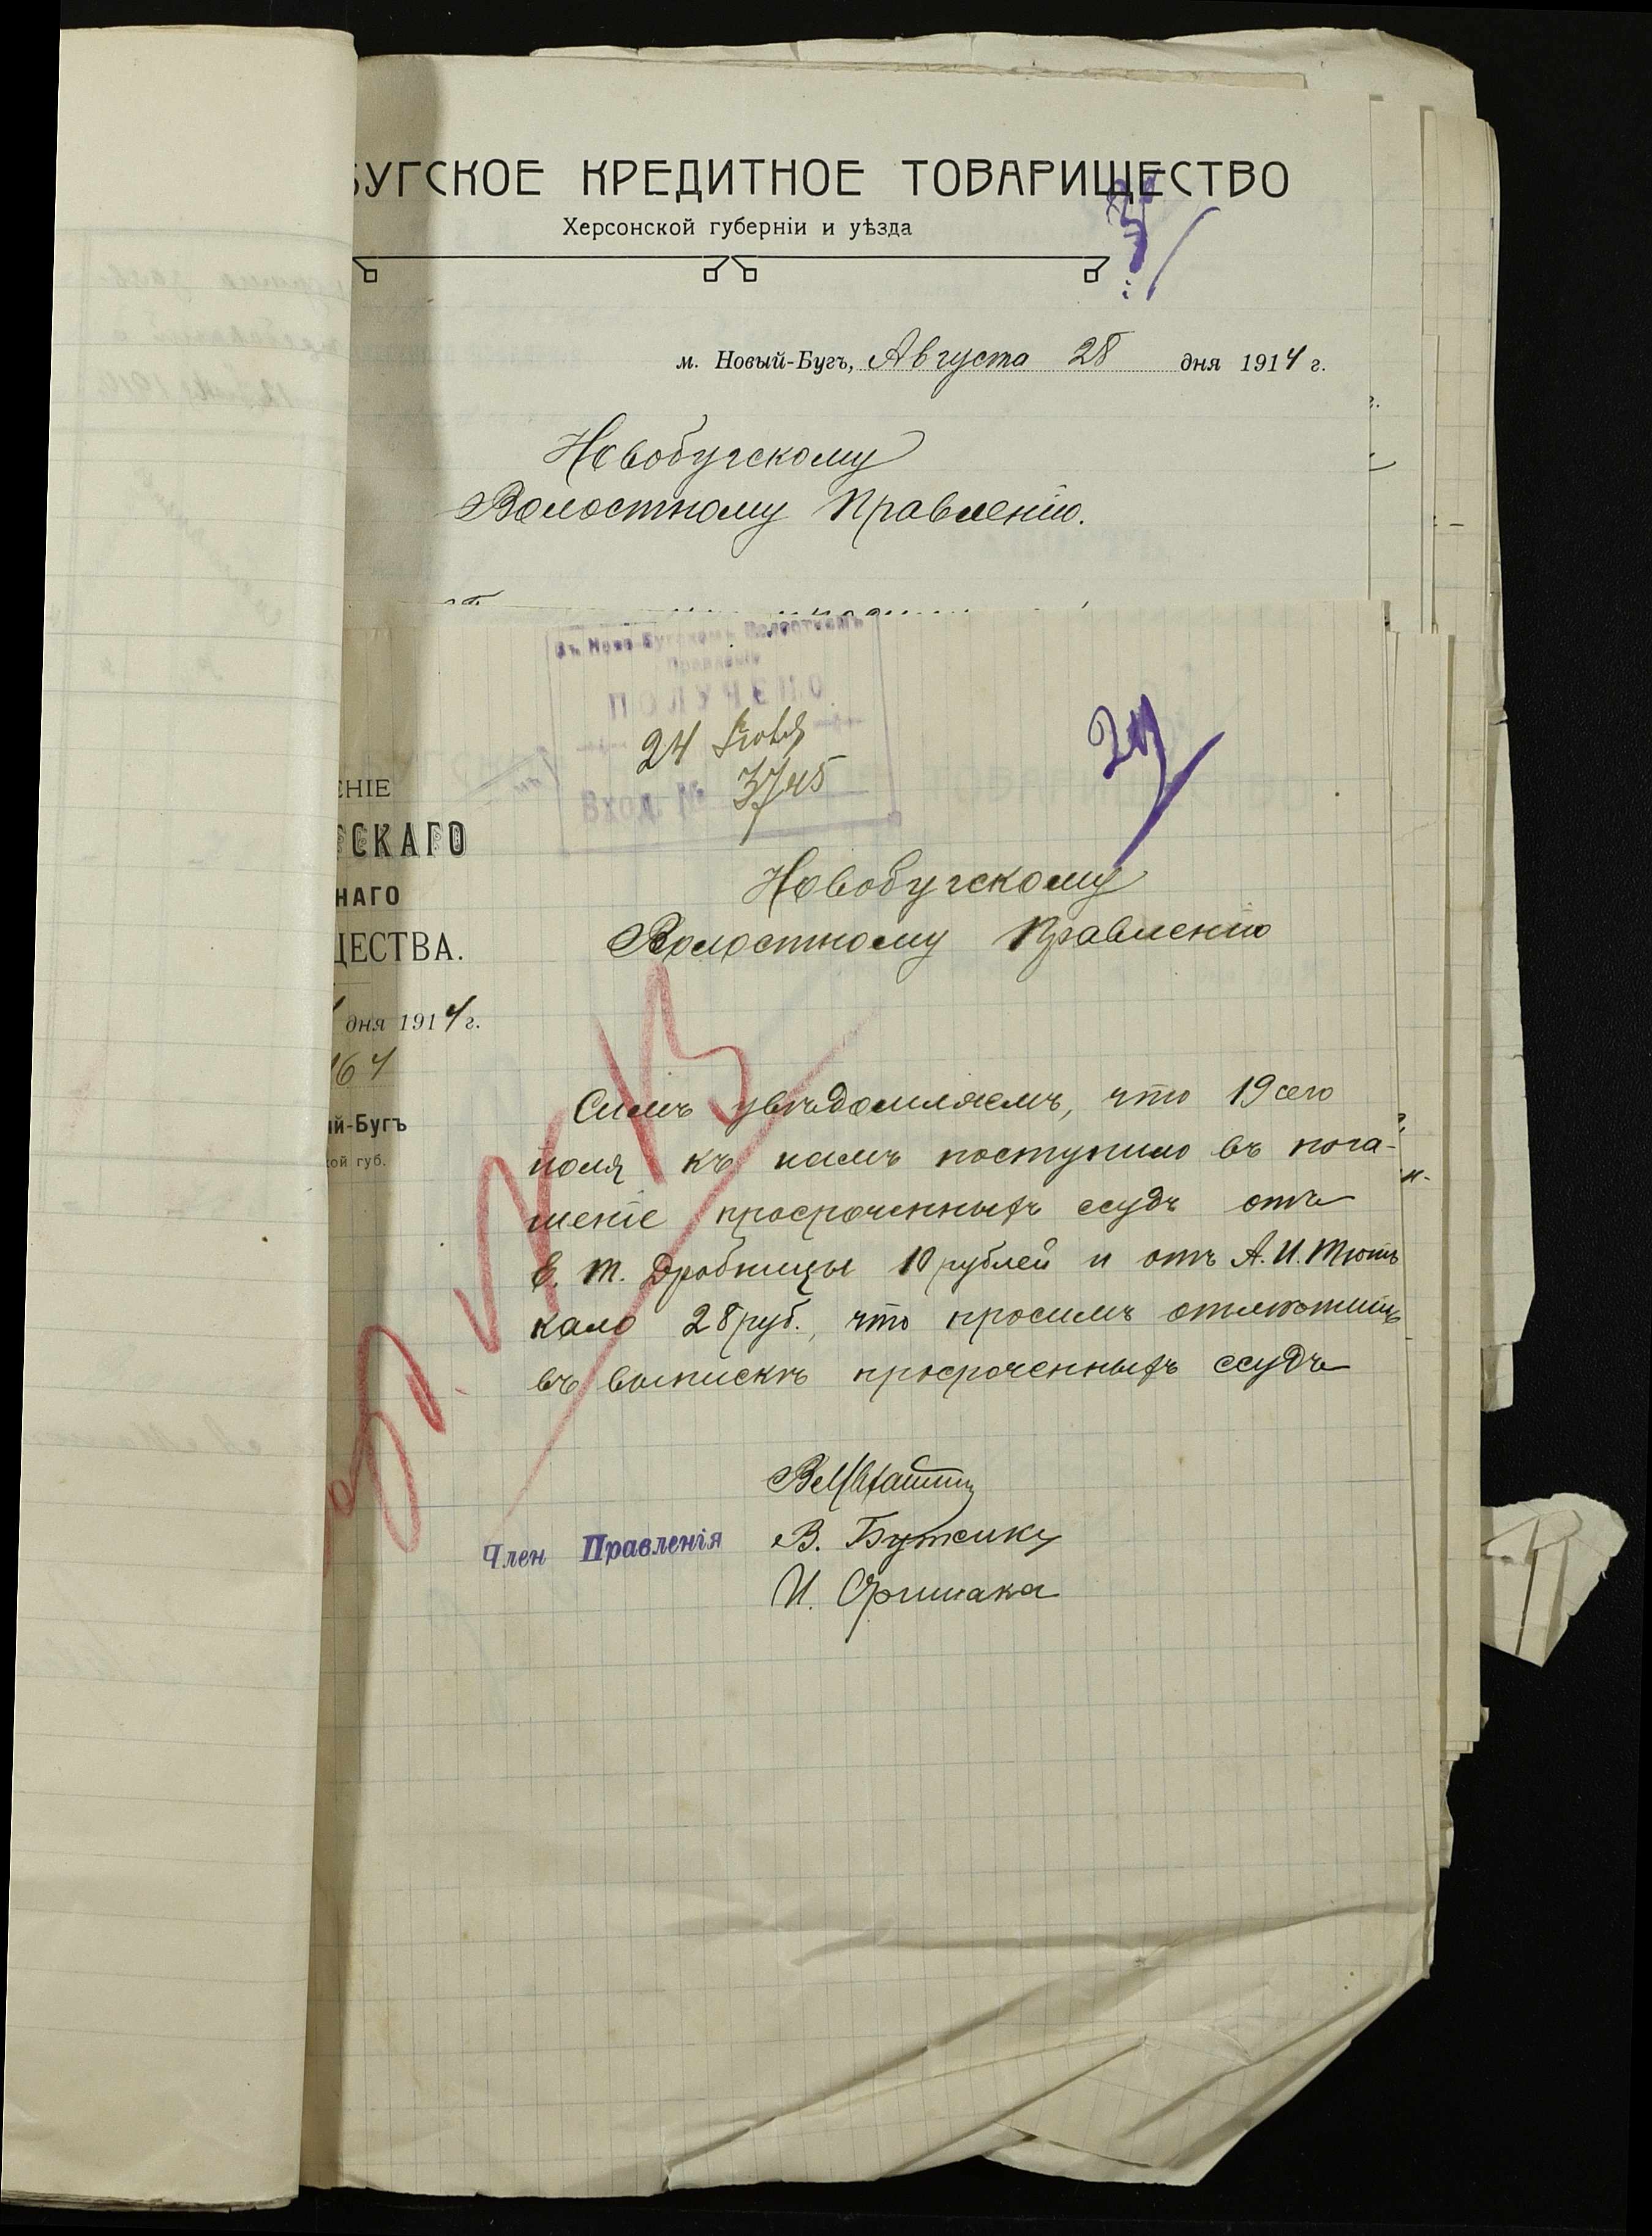 БУГСКОЕ КРЕДИТНОЕ ТОВАРИЩЕСТВО
Херсонской губерніи и уѣзда
м. Новый-Бугъ, Августа 28 дня 1914 г.
Новобугскому
Волостному Правленію.
Въ Ново-Бугскомъ Волостномъ
Правленіи
ПОЛУЧЕНО
24 Іюля
Вход. № 3745
24
ЕНІЕ
ГСКАГО
НАГО
ЩЕСТВА.
дня 1914 г.
164
ый-Бугъ
ской губ.
Новобугскому
Волостному Правленію
Симъ увѣдомляемъ, что 19 сего
іюля къ намъ поступило въ пога-
шеніе просроченныхъ ссудъ отъ
Е. Т. Дробницы 10 рублей и отъ А. И. Тють
кало 28 руб., что просимъ отмѣтить
въ выпискѣ просроченныхъ ссудъ
Член Правленія
В.
И.